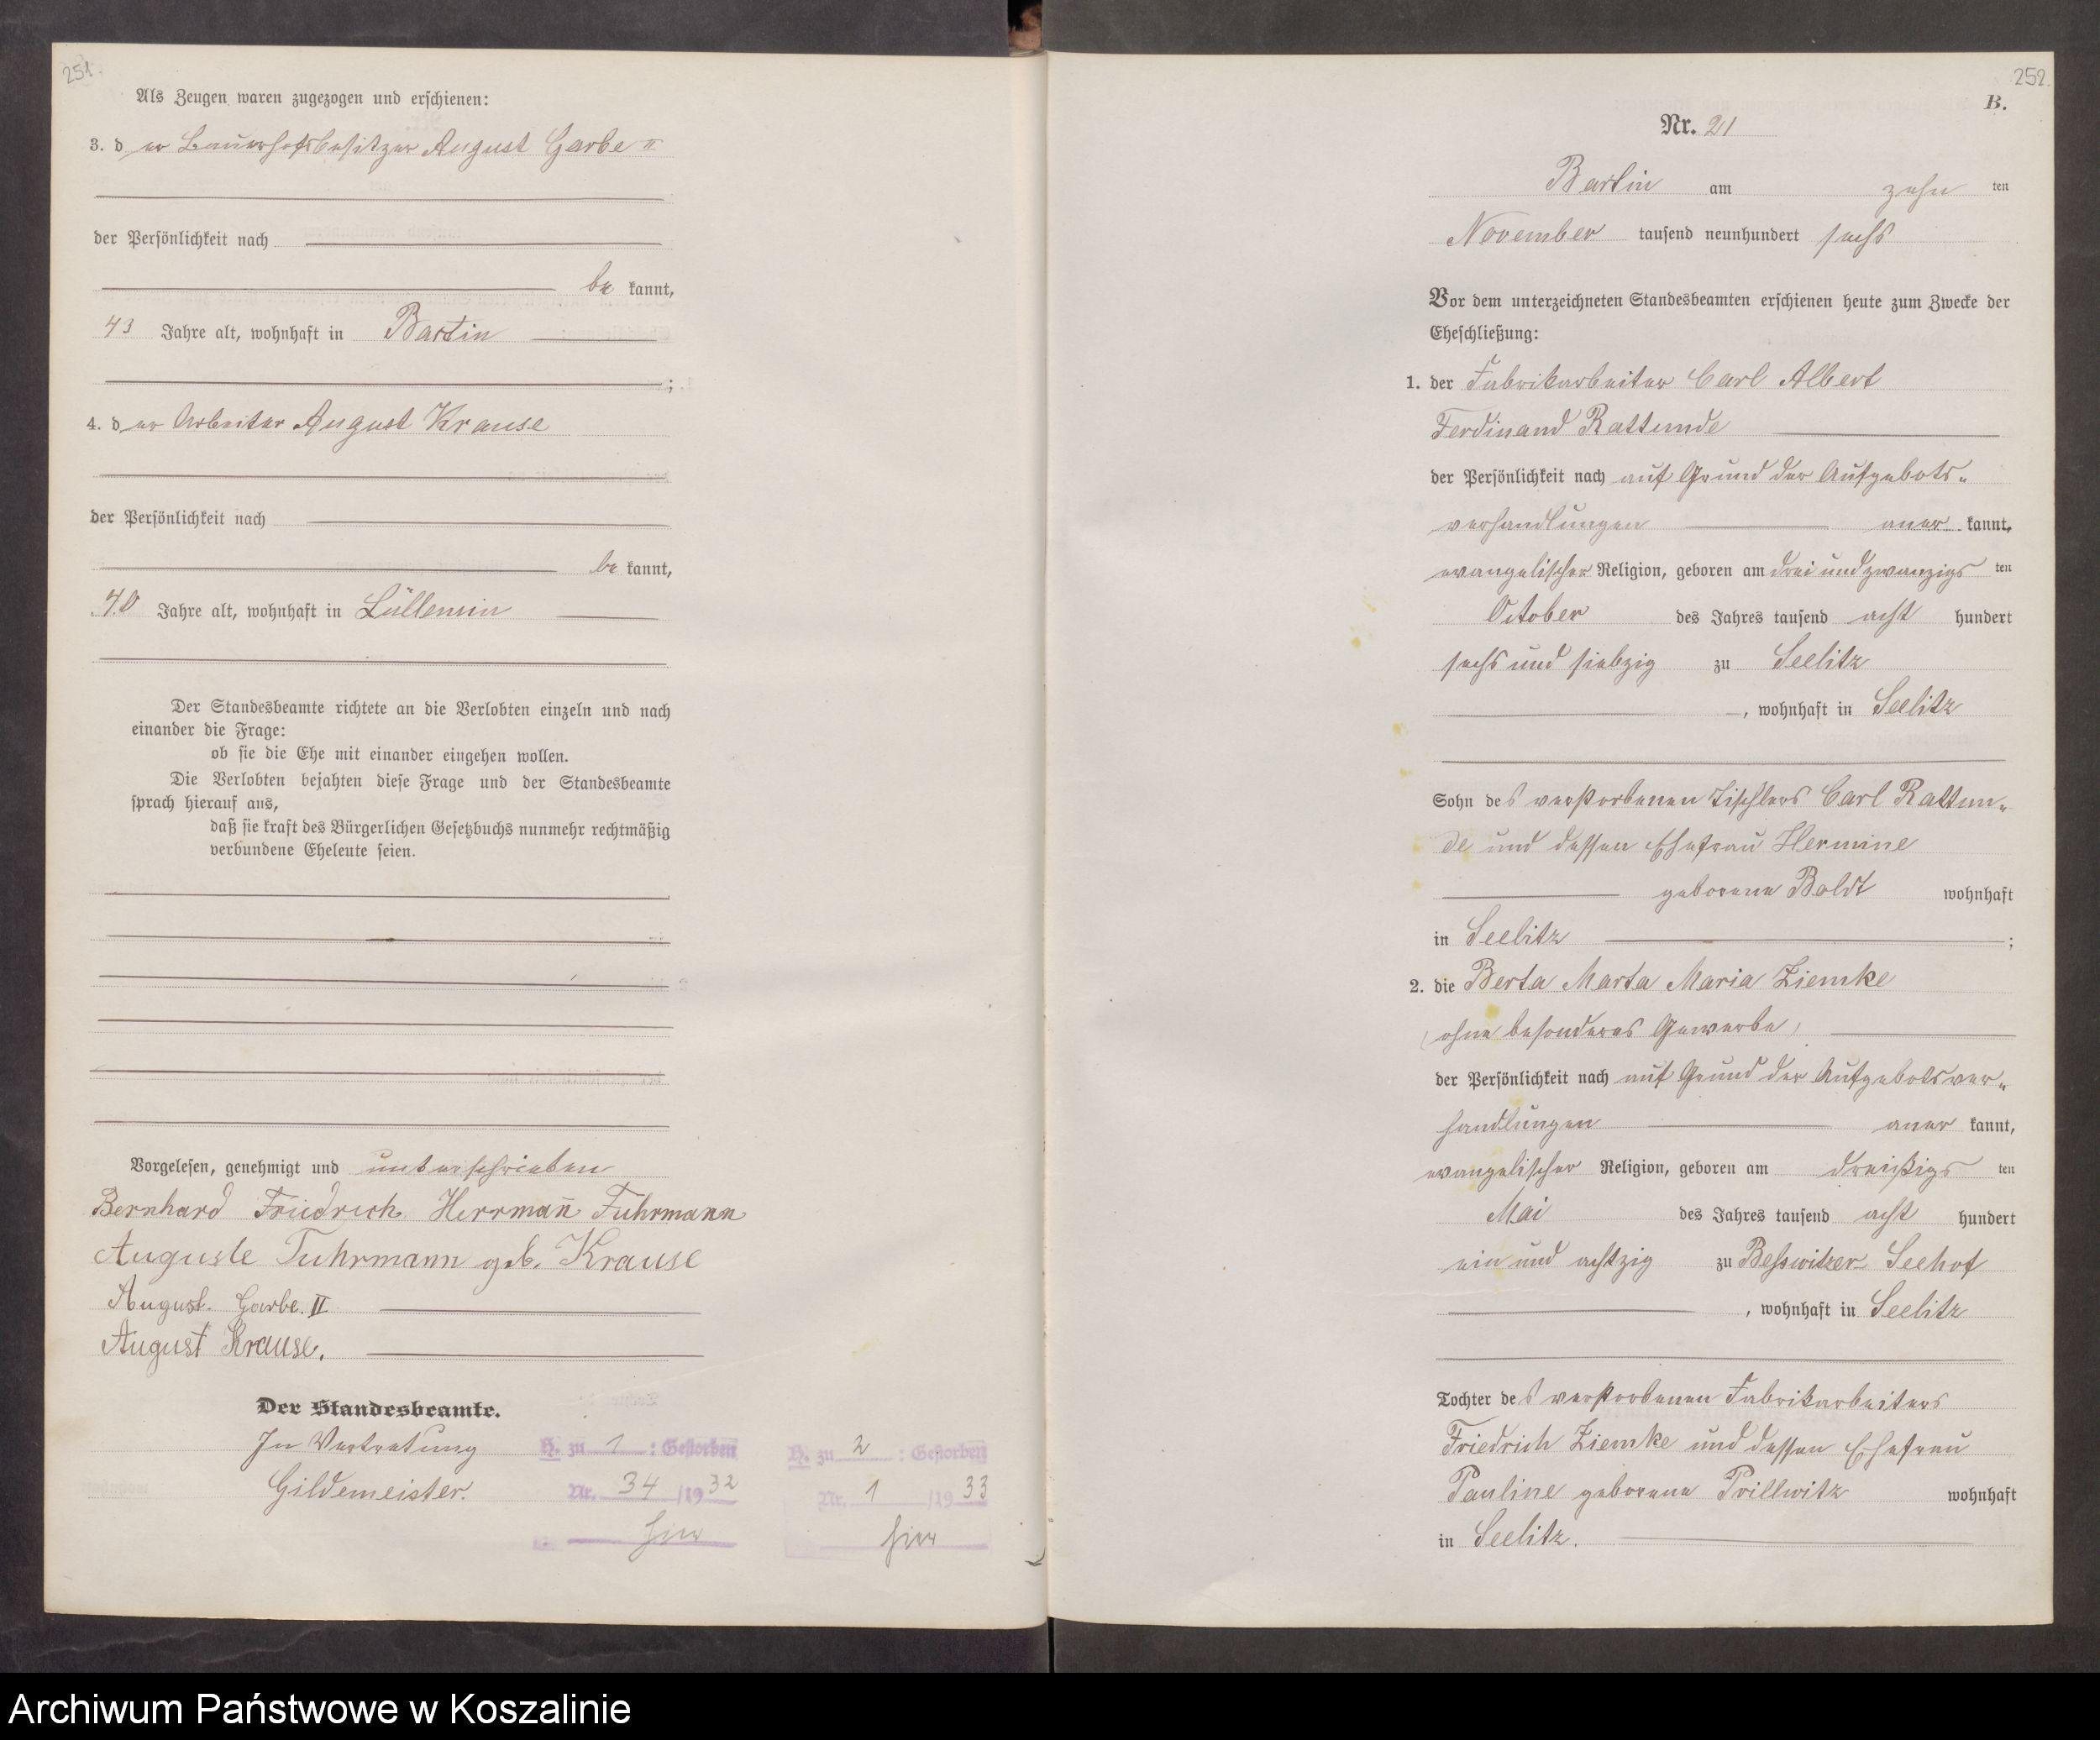 251.
Als Zeugen waren zugezogen und erschienen:
3. der Bauerhofsbesitzer August Garbe II
der Persönlichkeit nach
be kannt,
43 Jahre alt, wohnhaft in Bartin
;
4. der Arbeiter August Krause
der Persönlichkeit nach
be kannt,
40 Jahre alt, wohnhaft in Lüllemin
Der Standesbeamte richtete an die Verlobten einzeln und nach
einander die Frage:
ob sie die Ehe mit einander eingehen wollen.
Die Verlobten bejahten diese Frage und der Standesbeamte
sprach hierauf aus,
daß sie kraft des Bürgerlichen Gesetzbuchs nunmehr rechtmäßig
verbundene Eheleute seien.
Vorgelesen, genehmigt und unterschrieben
Bernhard Friedrich Herrman̄ Fuhrmann
Auguste Fuhrmann geb. Krause
August. Garbe. II
August Krause.
Der Standesbeamte.
In Vertretung
Gildemeister.
H. zu 1 : Gestorben
Nr. 34 /19 32
hier
H. zu 2 : Gestorben
Nr. 1 /19 33
hier
252.
B.
Nr. 21
Bartin am zehn ten
November tausend neunhundert sechs
Vor dem unterzeichneten Standesbeamten erschienen heute zum Zwecke der
Eheschließung:
1. der Fabrikarbeiter Carl Albert
Ferdinand Rattunde
der Persönlichkeit nach auf Grund der Aufgebots-
verhandlungen aner kannt,
evangelischer Religion, geboren am drei und zwanzigs ten
October des Jahres tausend acht hundert
sechs und siebzig zu Seelitz
, wohnhaft in Seelitz
Sohn des verstorbenen Tischlers Carl Rattun-
de und dessen Ehefrau Hermine
geborene Boldt wohnhaft
in Seelitz ;
2. die Berta Marta Maria Ziemke
(ohne besonderes Gewerbe)
der Persönlichkeit nach auf Grund der Aufgebotsver-
handlungen aner kannt,
evangelischer Religion, geboren am dreißigs ten
Mai des Jahres tausend acht hundert
ein und achtzig zu Besswitzer Seehof
, wohnhaft in Seelitz
Tochter des verstorbenen Fabrikarbeiters
Friedrich Ziemke und dessen Ehefrau
Pauline geborene Prillwitz wohnhaft
in Seelitz.
Archiwum Państwowe w Koszalinie